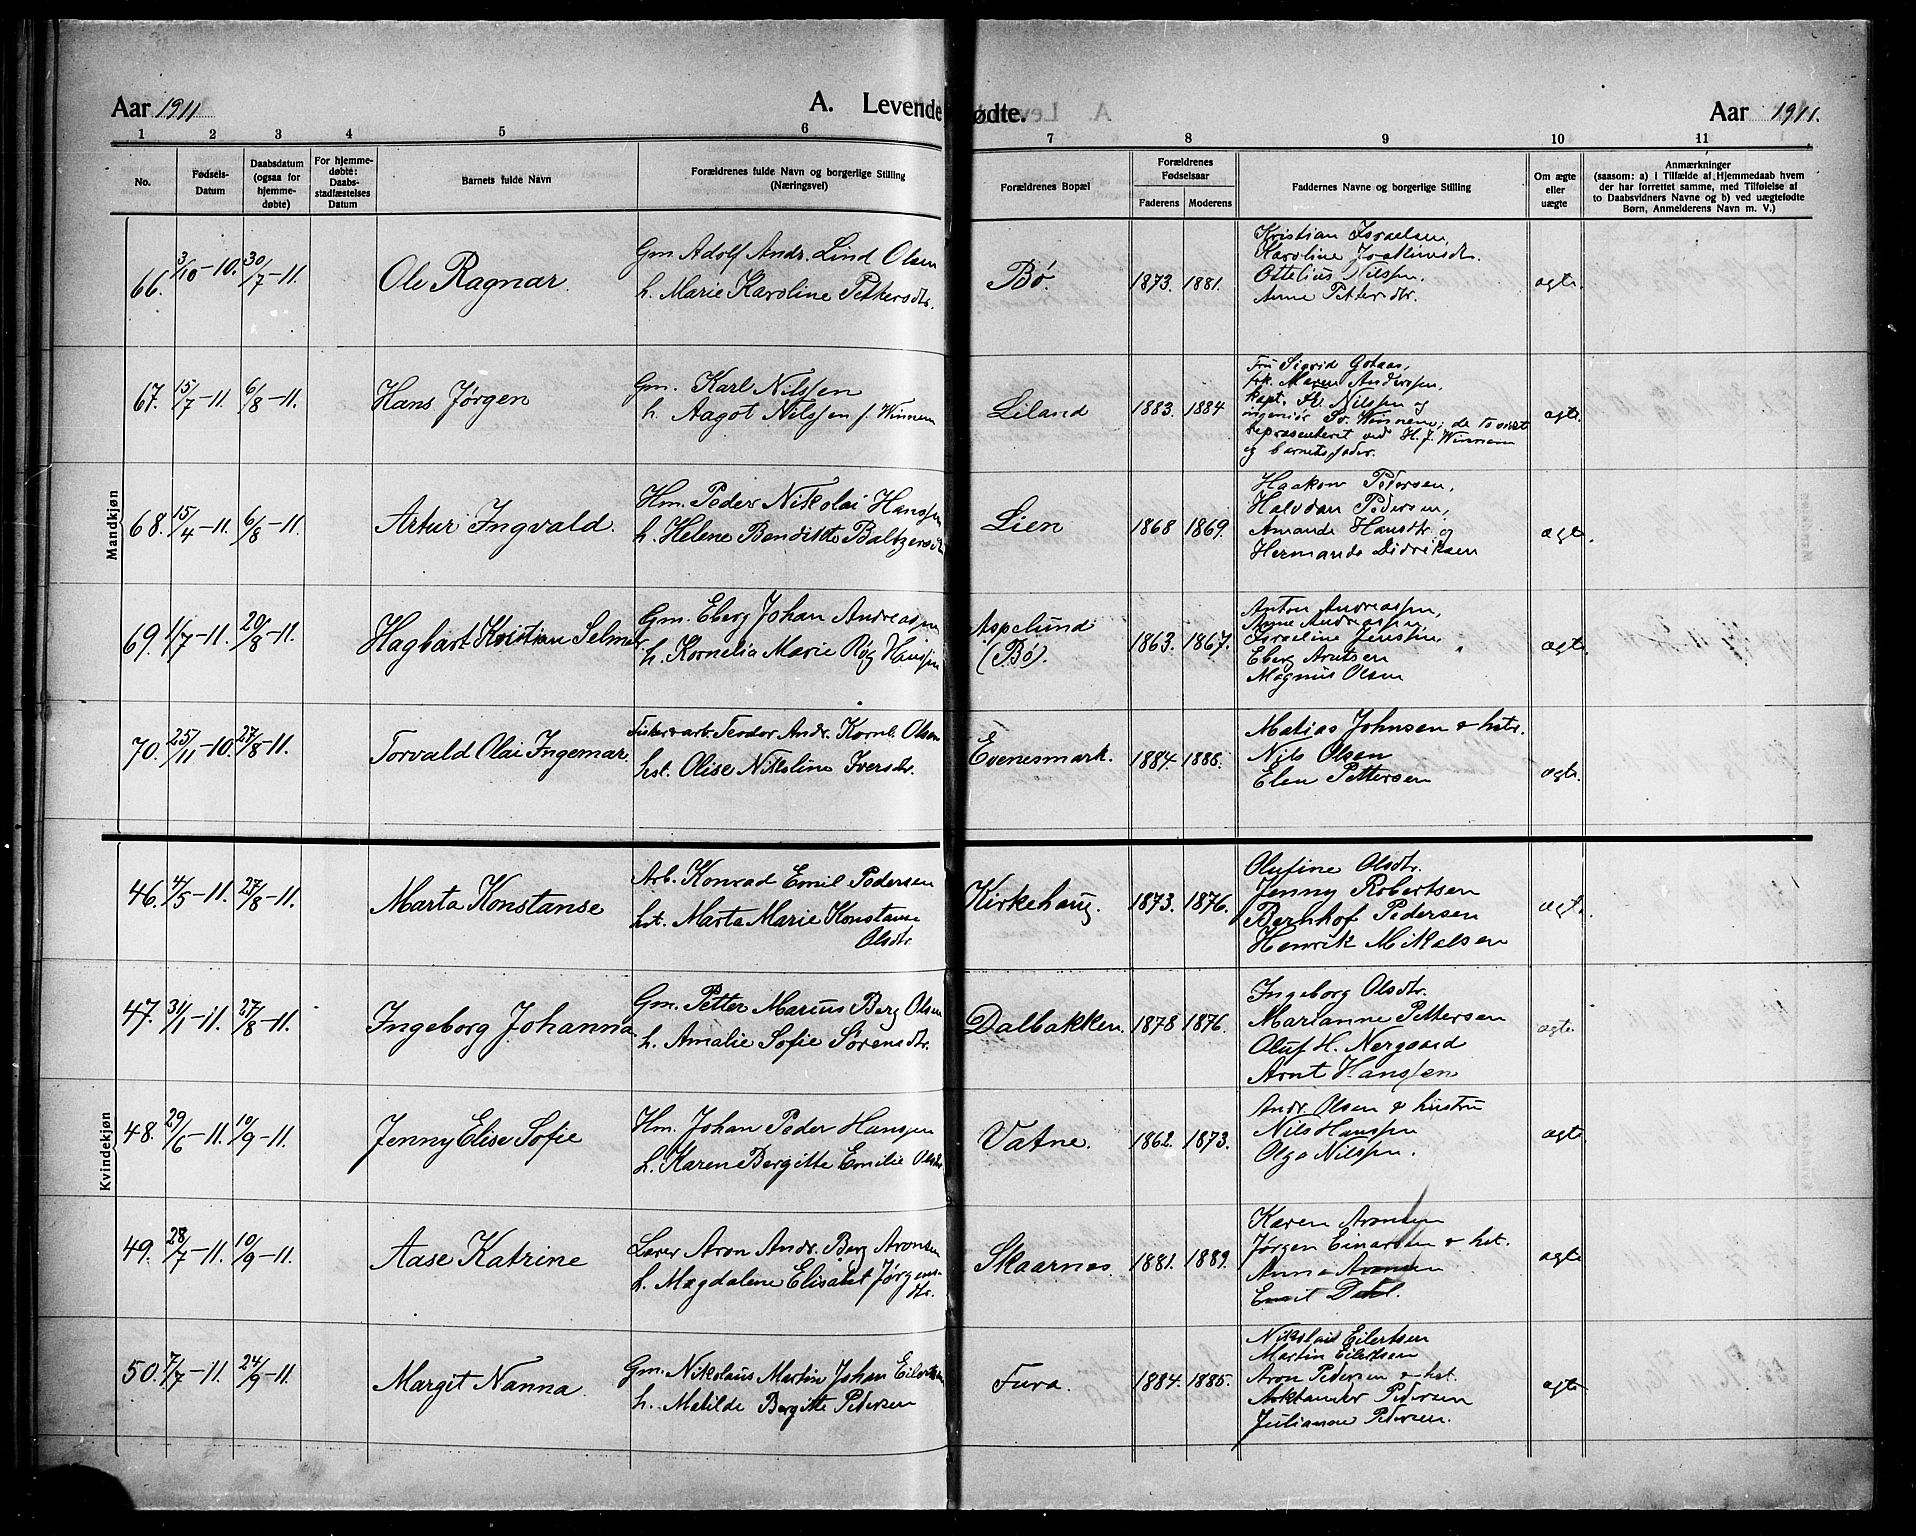 Aar 1911 A. Levende
1 2 3 4 5 6
No. Fødsels-Datum Daabsdatum (ogsaa for hjemme-døbte) For hjemme-døbte: Daabs-stadfæstelses Datum Barnets fulde Navn Forældrenes fulde Navn og borgerlige Stilling (Næringsvei)
Mandkjøn
66. 3/10-10. 30/7-11. Ole Ragnar. Gm. Adolf Andr. Lind Olsen
h. Marie Karoline Pettersdtr.
67. 15/7-11. 6/8-11. Hans Jørgen Gm. Karl Nilssen
h. Aagot Nilssen f. Winnem
68. 15/4-11. 6/8-11. Artur Ingvald. Hm. Peder Nikolai Hanssen
h. Helene Bendikte Baltzersdtr
69. 1/7-11. 20/8-11. Hagbart Kristian Selmer Gm. Eberg Johan Andreassen
h. Kornelia Marie Røg Hanssen
70. 25/11-10. 27/8-11. Torvald Olai Ingemar. Fiskerarb. Teodor Andr. Kornl. Olsen
hst. Olise Nikoline Iversdtr.
Kvindekjøn
46. 4/5-11. 27/8-11. Marta Konstanse Arb. Konrad Emil Pedersen
hst. Marta Marie Konstanse
Olsdtr.
47. 31/1-11. 27/8-11. Ingeborg Johanna Gm. Petter Marius Berg Olsen
h. Amalie Sofie Sørensdtr.
48. 29/6-11. 10/9-11. Jenny Elise Sofie Hm. Johan Peder Hanssen
h. Karen Bergitte Emilie Olsdtr
49. 28/7-11. 10/9-11. Aase Katrine Lærer Aron Andr. Berg Aronsen
h. Magdalene Elisabet Jørgens-
dtr.
50. 7/7-11. 24/9-11. Margit Nanna. Gm. Nikolaus Martin Johan Eilertsen
h. Matilde Bergitte Pedersen
ødte. Aar 1911.
7 8 9 10 11
Forældrenes Bopæl Forældrenes Fødselsaar Faderens Moderens Faddernes Navne og borgerlige Stilling Om ægte eller uægte Anmærkninger
(saasom: a) I Tilfælde af Hjemmedaab hvem
der har forrettet samme, med Tilføielse af
to Daabsvidners Navne og b) ved uægtefødte
Børn, Anmelderens Navn m. V.)
Bø. 1873. 1881. Kristian Israelsen,
Karoline Joakimsdtr.
Ottelius Nilssen,
Anne Pettersdtr. ægte.
Leiland 1883. 1884 Fru Sigrid Gotaas,
frk. Maren Anderssen,
kapt. H. Nilssen og
ingeniør Sv. Winnem; de to sidste
repræsenteret ved H. J. Winnem
og barnets fader. ægte.
Lien 1868 1869. Haakon Pedersen,
Halvdan Pedersen,
Amanda Hansdtr. og
Hermande Didriksen ægte.
Aspelund
(Bø). 1863. 1867. Anton Andreassen,
Anne Andreassen,
Israeline Jenssen,
Eberg Arntsen
Magnus Olsen ægte.
Evenesmark. 1884. 1888. Matias Johnsen & hstr.
Nils Olsen
Elen Pettersen ægte.
Kirkehaug. 1873. 1876. Olufine Olsdtr.
Jenny Robertsen
Bernhof Pedersen
Henrik Mikalsen ægte.
Dalbakken. 1878 1876. Ingeborg Olsdtr.
Marianne Pettersen
Oluf H. Nergaard
Arnt Hanssen ægte.
Vatne. 1862. 1873. Andr. Olsen & hustru
Nils Hanssen
Olga Nilssen. ægte
Skaarnes. 1881. 1889. Karen Aronsen
Jørgen Einarsen & hst.
Anna Aronsen
Emil Dahl. ægte
Fura. 1884. 1885. Nikolai Eilertsen
Martin Eilertsen
Aron Pedersen & hst.
Aleksander Pedersen
Julianne Pedersen. ægte